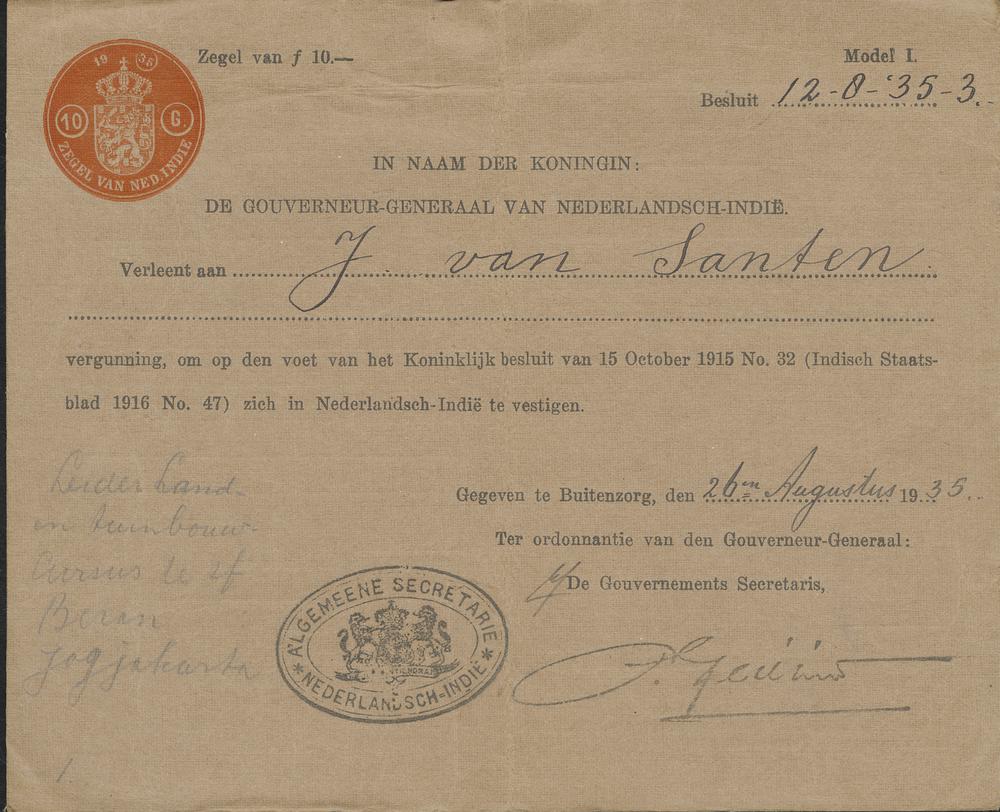 19 35
10 G.
ZEGEL VAN NED. INDIE
Zegel van ƒ 10.—
Model I.
Besluit 12-8-'35-3.
IN NAAM DER KONINGIN:
DE GOUVERNEUR-GENERAAL VAN NEDERLANDSCH-INDIË.
Verleent aan J van Santen.
vergunning, om op den voet van het Koninklijk besluit van 15 October 1915 No. 32 (Indisch Staats-
blad 1916 No. 47) zich in Nederlandsch-Indië te vestigen.
Gegeven te Buitenzorg, den 26en Augustus 1935.
Ter ordonnantie van den Gouverneur-Generaal:
De Gouvernements Secretaris,
Leider Land-
en tuinbouw-
Cursus te
Beran
Jogjakarta
1.
ALGEMEENE SECRETARIE
NEDERLANDSCH-INDIË